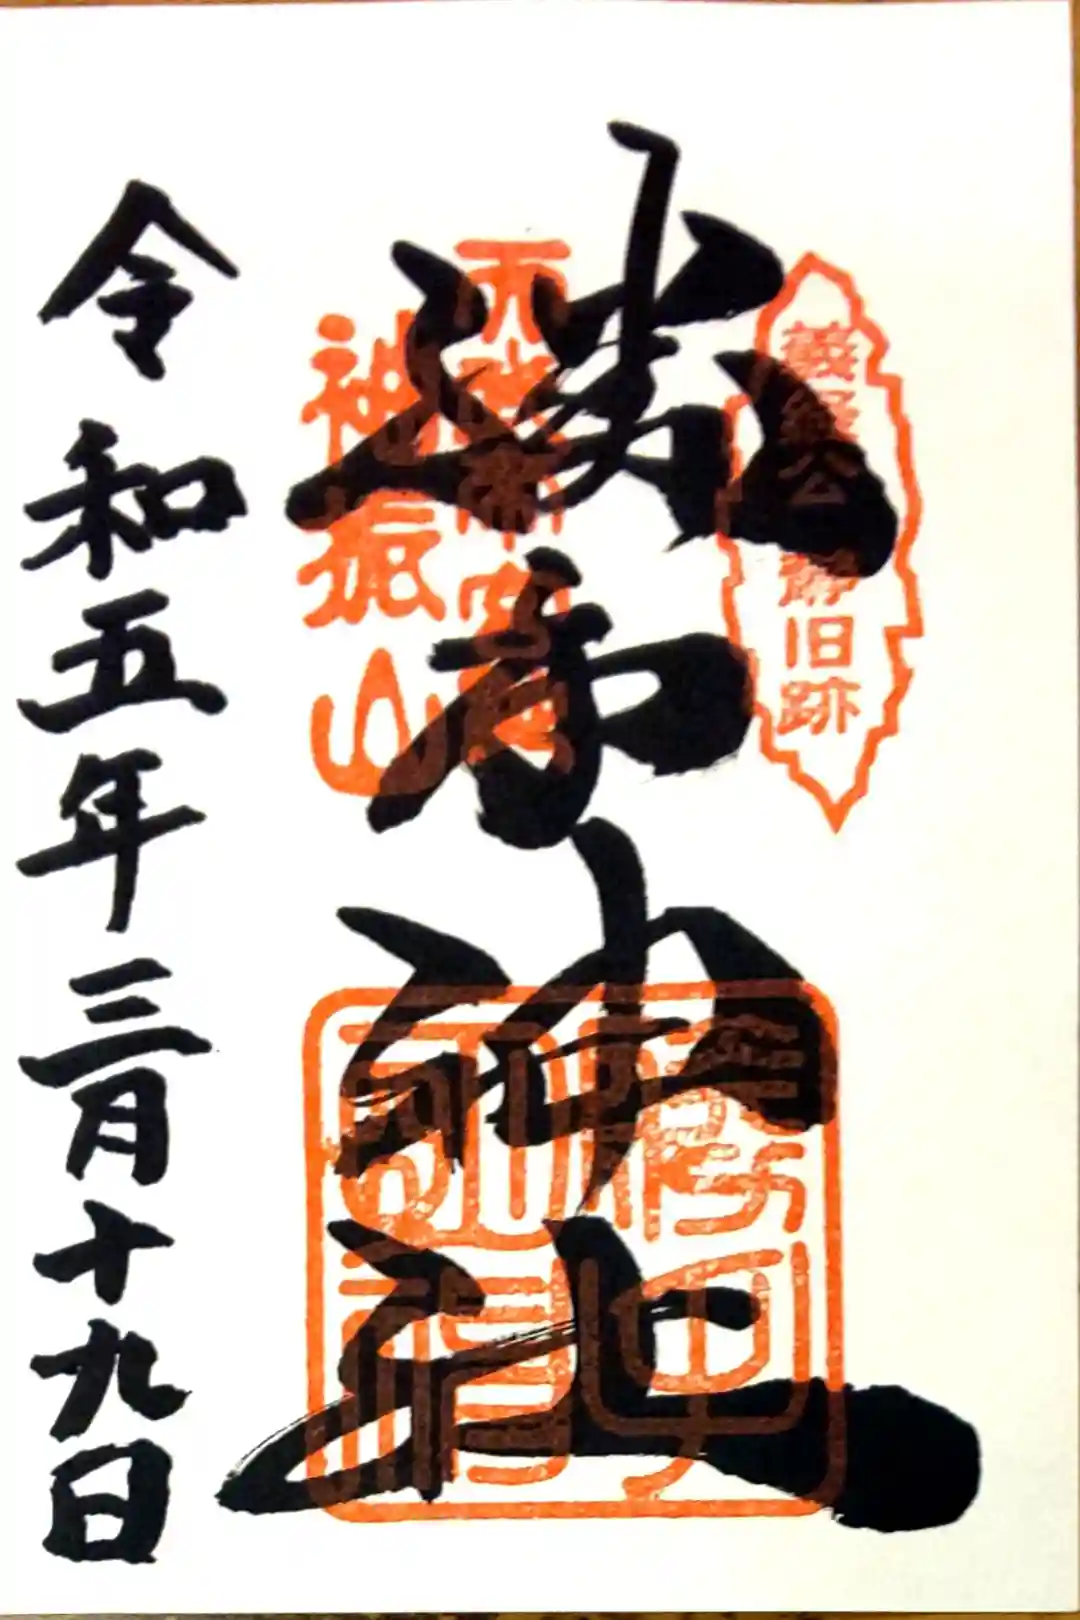 義経公 静旧跡
勝手神社
袖振山
令和五年三月十九日